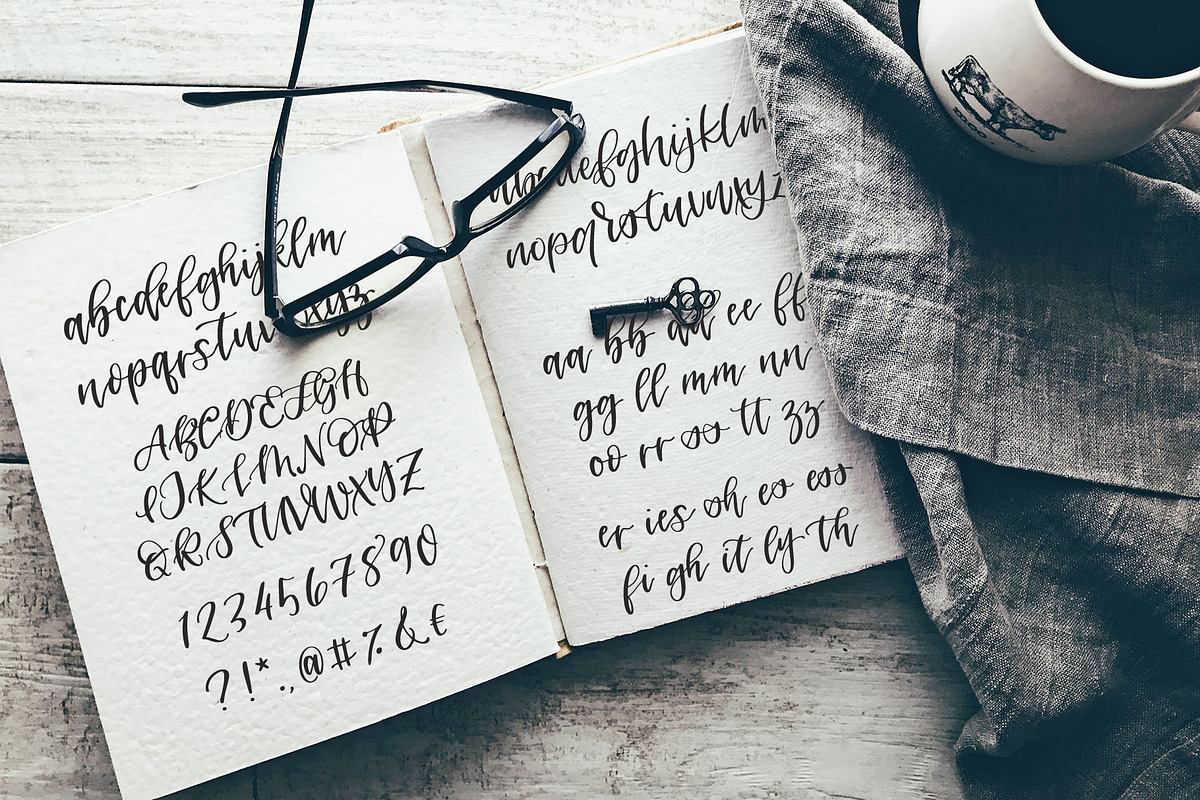 abcdefghijklm
nopqrstuvwxyz
ABCDEFGH
IJKLMNOP
QRSTUVWXYZ
1234567890
?!*.,@#%&€
abcdefghijklm
nopqrstuvwxyz
aa bb dd ee ff
gg ll mm nn
oo rr ss tt zz
er ies sh es ess
fi gh it ly th